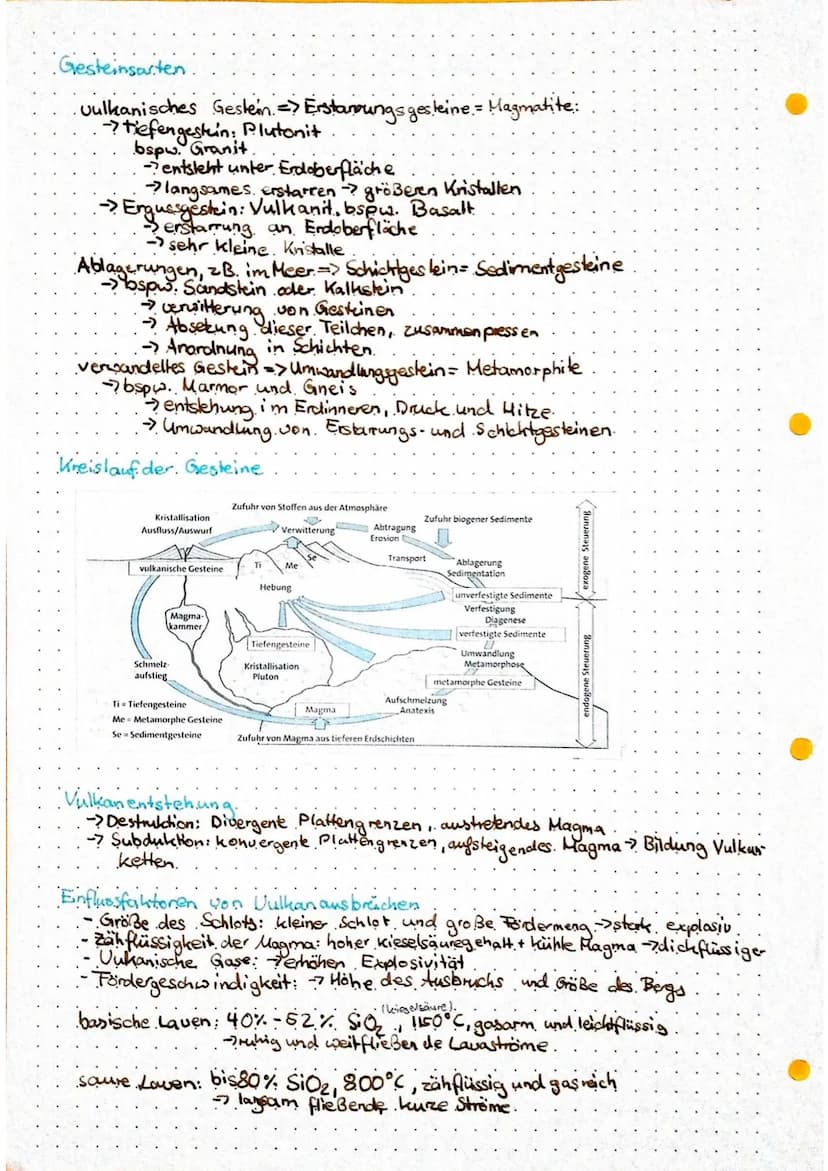 Gesteinsarten
vulkanisches Gestein => Erstarrungsgesteine = Magmatite:
→ Tiefengestein: Plutonit
bspw. Granit
→ entsteht unter Erdoberfläche
→ langsames erstarren → größeren Kristallen
→ Ergussgestein: Vulkanit, bspw. Basalt
→ erstarrung an Erdoberfläche
→ sehr kleine Kristalle
Ablagerungen, zB. im Meer => Schichtgestein = Sedimentgesteine
→ bspw. Sandstein oder Kalkstein
→ verwitterung von Gesteinen
→ Absetzung dieser Teilchen, zusammenpressen
→ Anordnung in Schichten
verwandeltes Gestein => Umwandlunggestein = Metamorphite
→ bspw. Marmor und Gneis
→ entstehung im Erdinneren, Druck und Hitze
→ Umwandlung von Erstarrungs- und Schichtgesteinen
Kreislauf der Gesteine
Zufuhr von Stoffen aus der Atmosphäre
Kristallisation
Ausfluss/Auswurf
Verwitterung
Abtragung
Erosion
Zufuhr biogener Sedimente
exogene Steuerung
vulkanische Gesteine
Ti
Me
Se
Transport
Ablagerung
Sedimentation
Hebung
unverfestigte Sedimente
Verfestigung
Diagenese
Magma-
kammer
verfestigte Sedimente
Tiefengesteine
Umwandlung
Metamorphose
Schmelz-
aufstieg
Kristallisation
Pluton
metamorphe Gesteine
endogene Steuerung
Ti = Tiefengesteine
Me = Metamorphe Gesteine
Se = Sedimentgesteine
Magma
Aufschmelzung
Anatexis
Zufuhr von Magma aus tieferen Erdschichten
Vulkanentstehung
→ Destruktion: Divergente Plattengrenzen, austretendes Magma
→ Subduktion: konvergente Plattengrenzen, aufsteigendes Magma → Bildung Vulkan
ketten
Einflussfaktoren von Vulkanausbrüchen
- Größe des Schlots: kleiner Schlot und große Fördermeng → stark explosiv
- Zähflüssigkeit der Magma: hoher kieselsäuregehalt + kühle Magma → dickflüssiger
- Vulkanische Gase: → erhöhen Explosivität
- Fördergeschwindigkeit: → Höhe des Ausbruchs und Größe des Bergs
(kieselsäure)
basische Laven: 40% - 52% SiO2, 1150°C, gasarm und leichtflüssig
→ ruhig und weitfließende Lavaströme
saure Laven: bis 80% SiO2, 800°C, zähflüssig und gasreich
→ langsam fließende kurze Ströme